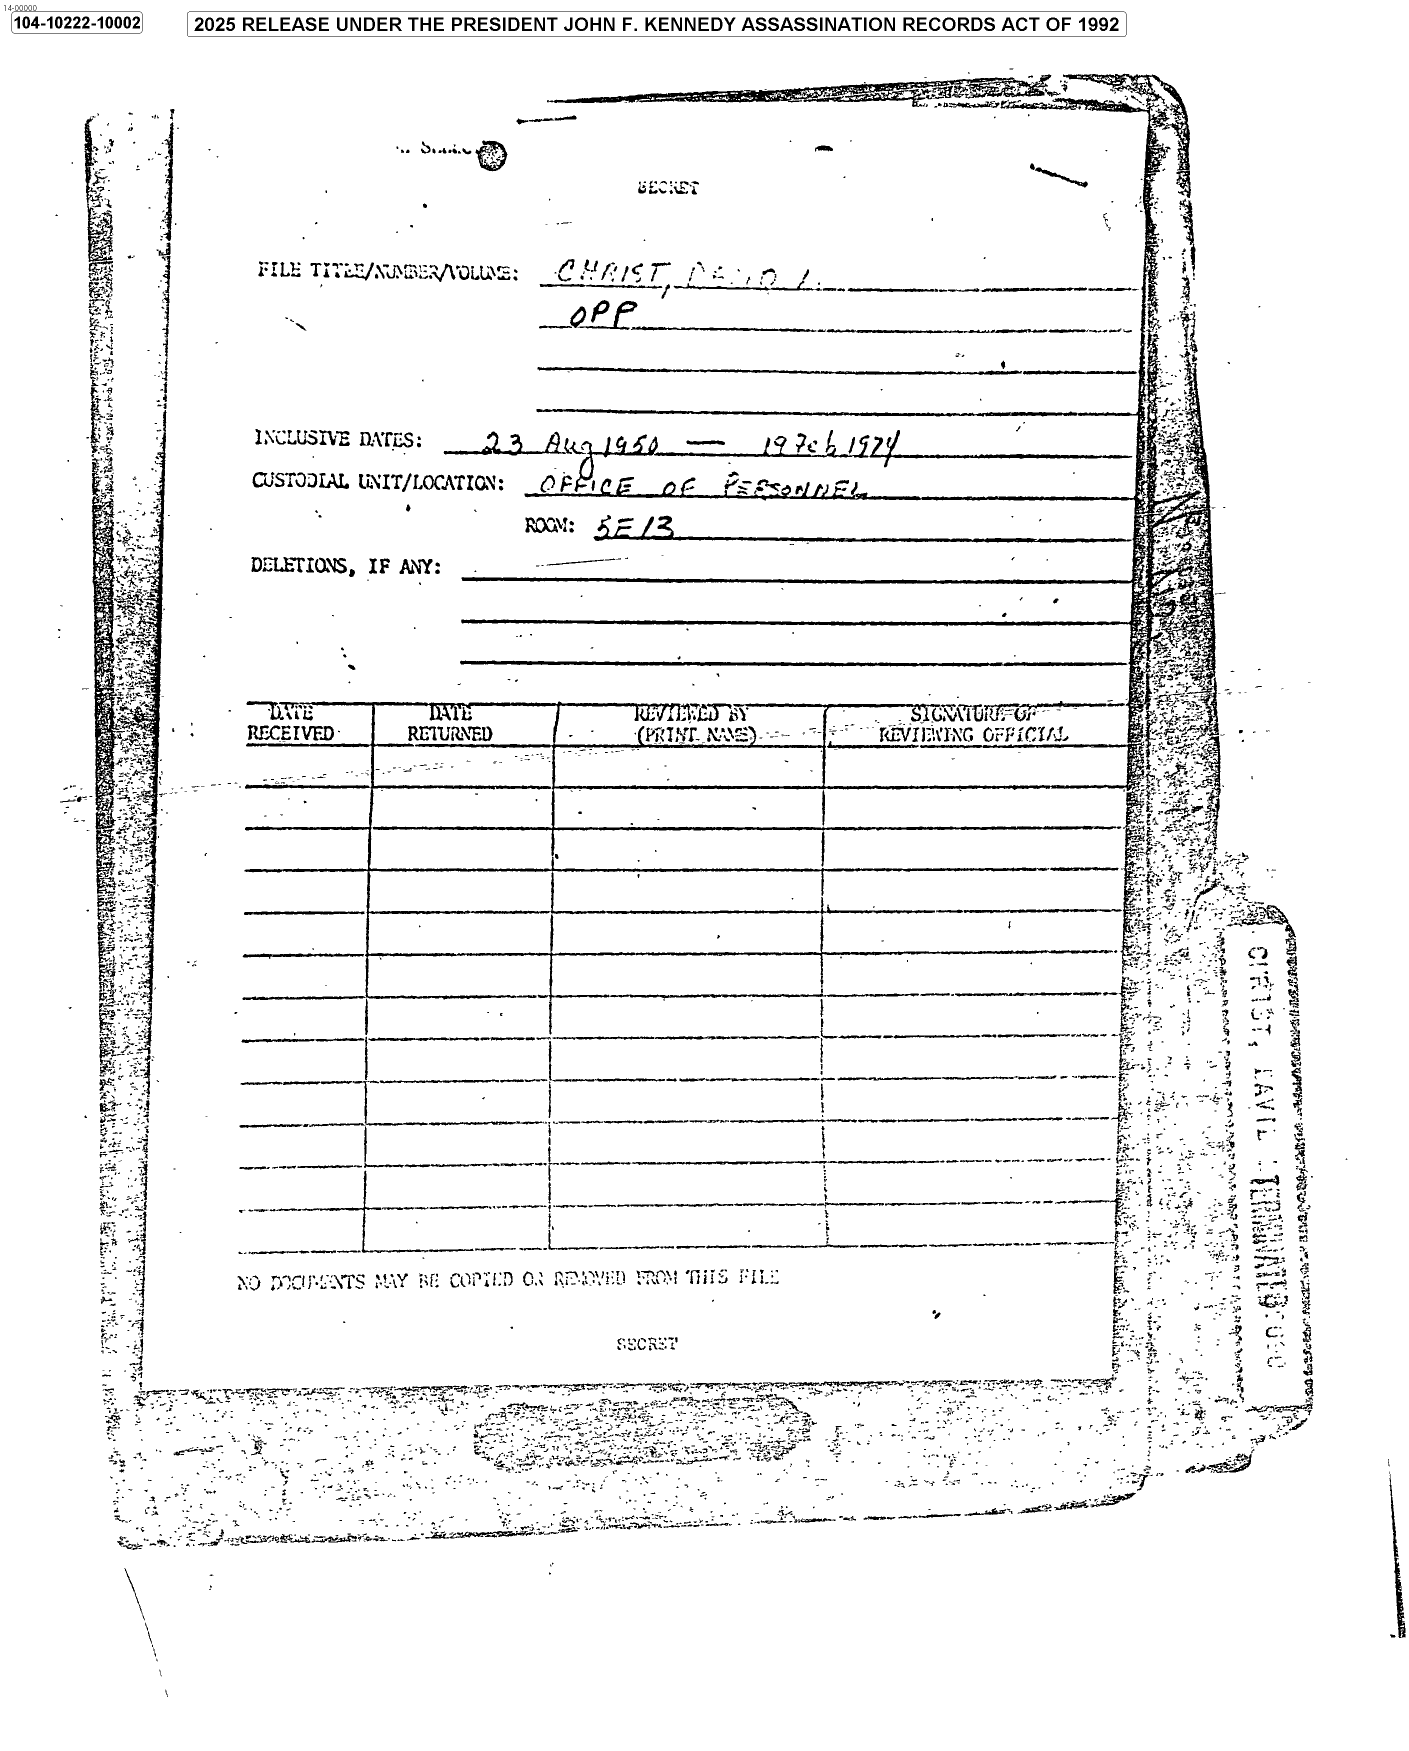 14-00000
104-10222-10002
2025 RELEASE UNDER THE PRESIDENT JOHN F. KENNEDY ASSASSINATION RECORDS ACT OF 1992
SECRET
FILE TITLE/NUMBER/VOLUME: CHRIST, DAVID L.
OPP
INCLUSIVE DATES: 23 Aug 1950 — 19 Feb 1974
CUSTODIAL UNIT/LOCATION: OFFICE OF PERSONNEL
ROOM: 5E13
DELETIONS, IF ANY:
DATE RECEIVED
DATE RETURNED
REVIEWED BY (PRINT NAME)
SIGNATURE OF REVIEWING OFFICIAL
NO DOCUMENTS MAY BE COPIED OR REMOVED FROM THIS FILE
SECRET
CHRIST, DAVID
TERMINATED